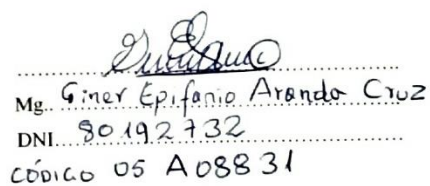 Mg. Giner Epifanio Aranda Cruz
DNI. 80192732
CÓDIGO 05 A08831